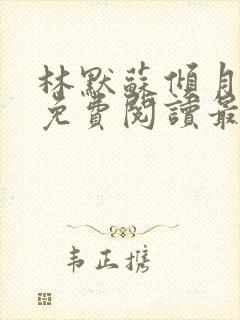 林默蘇傾月
免費閱讀最
韦正携